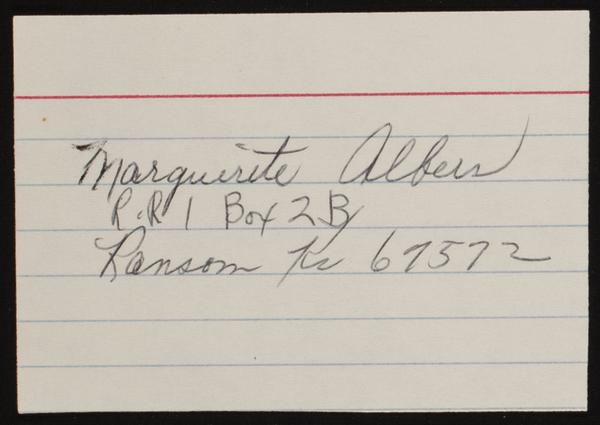 Marguerite Albers
R.R 1 Box 2 B
Ransom Ks 67572